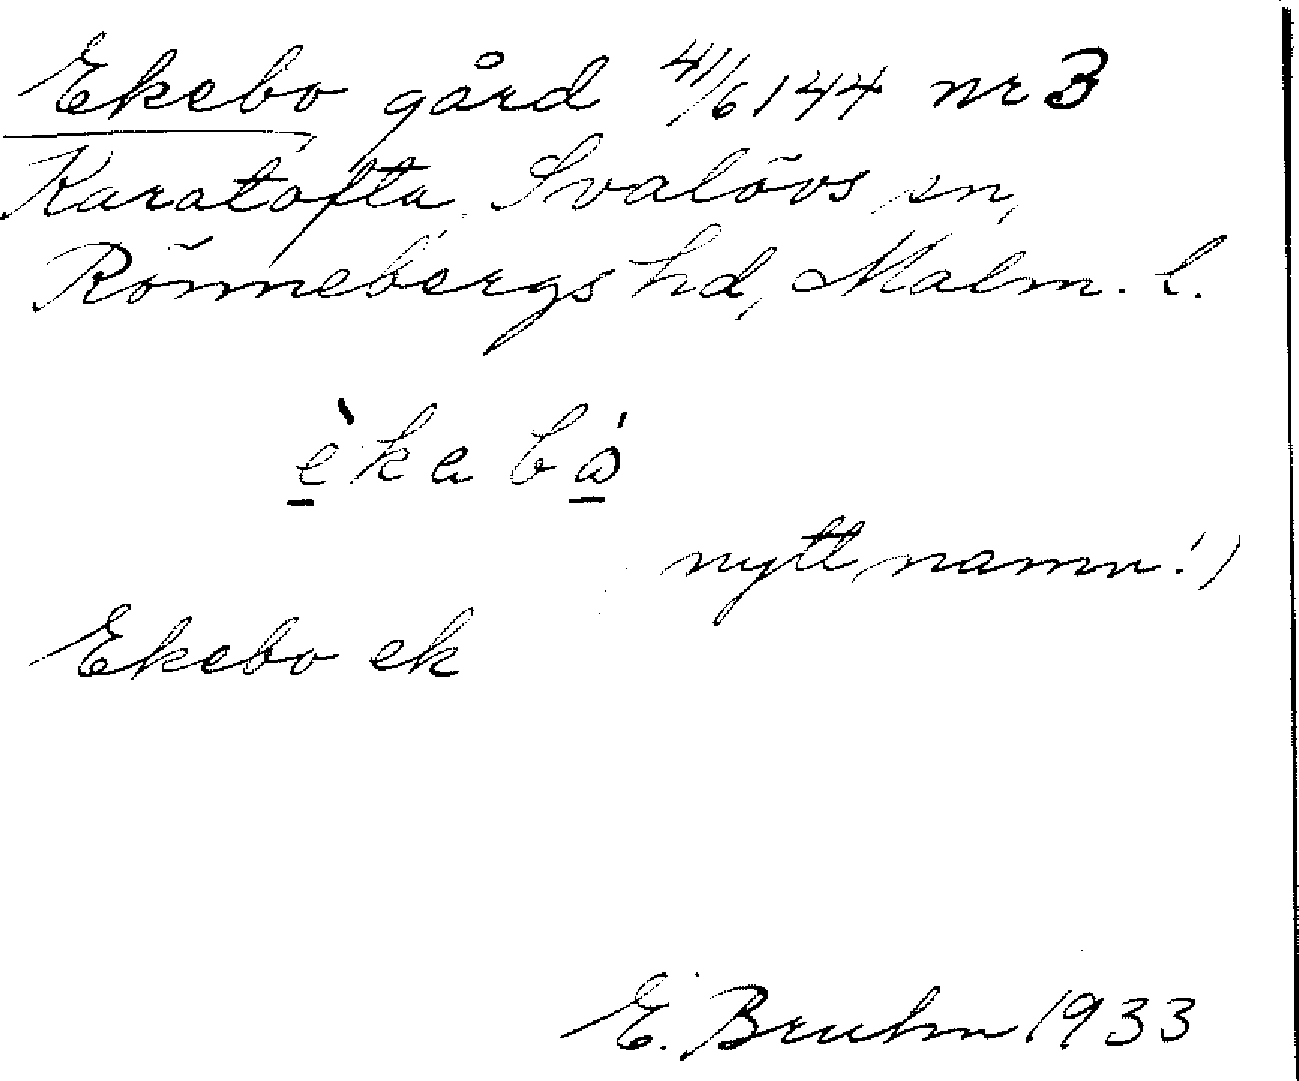 Ekebo gård 41/6144 nr 3
Karatofta, Svalövs sn,
Rönnebergs hd, Malm. l.
èkabó
nytt namn!)
Ekebo ek
E. Bruhn 1933